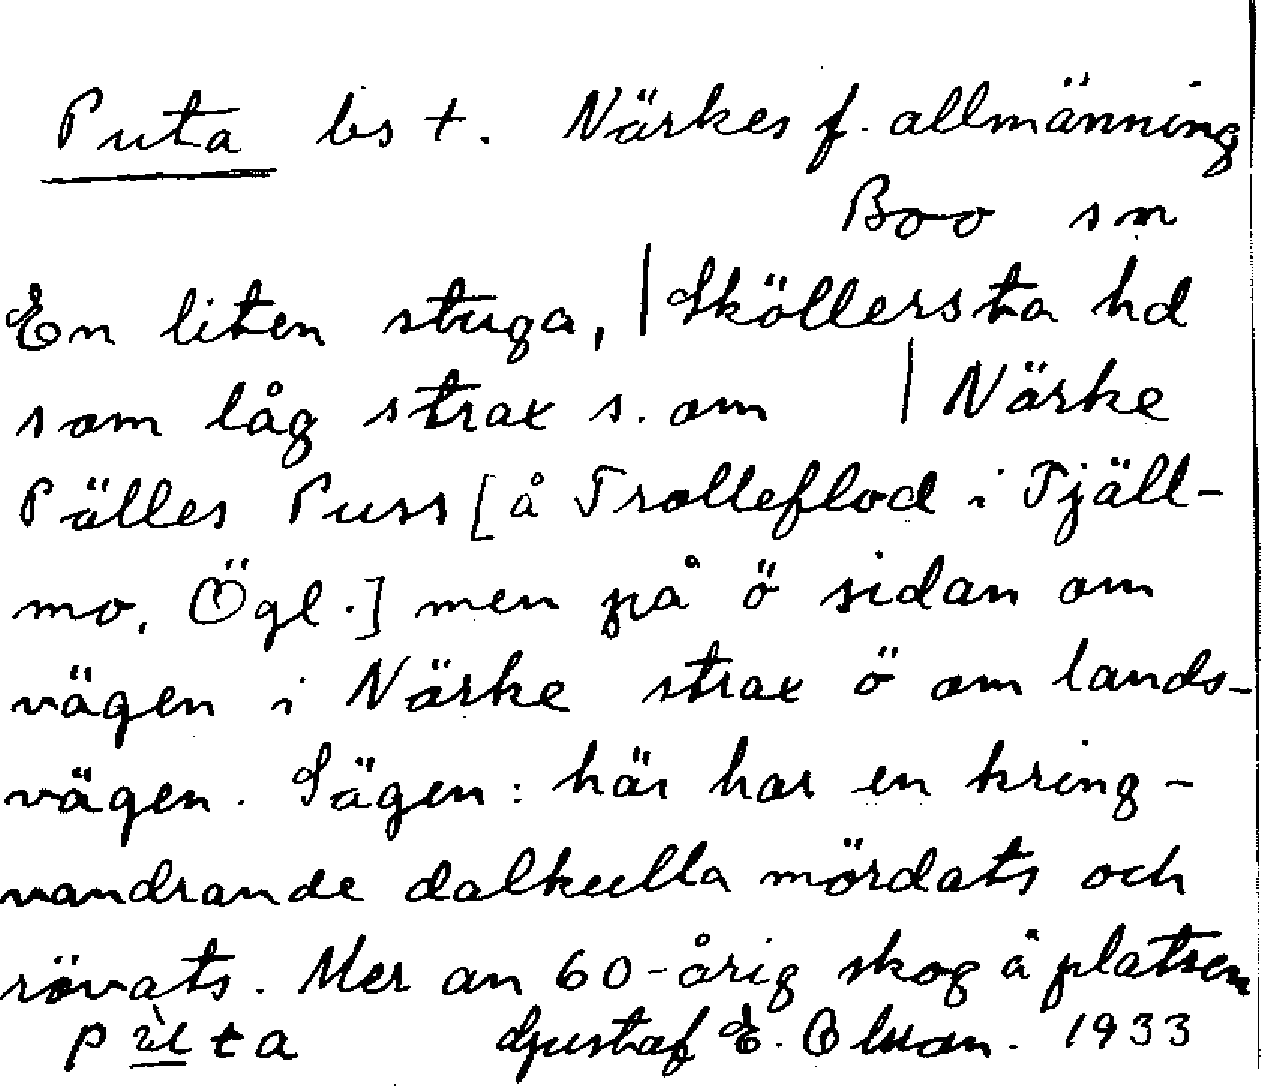 Puta bs +. Närkes f. allmänning
Boo sn
En liten stuga, | Sköllersta hd
som låg strax s. om | Närke
Pälles Puss [å Trolleflod i Tjäll-
mo, Ögl.] men på ö sidan om
vägen i Närke strax ö om lands-
vägen. Sägen: här har en kring-
vandrande dalkulla mördats och
rövats. Mer än 60-årig skog å platsen
pùta Gustaf E. Olsson. 1933